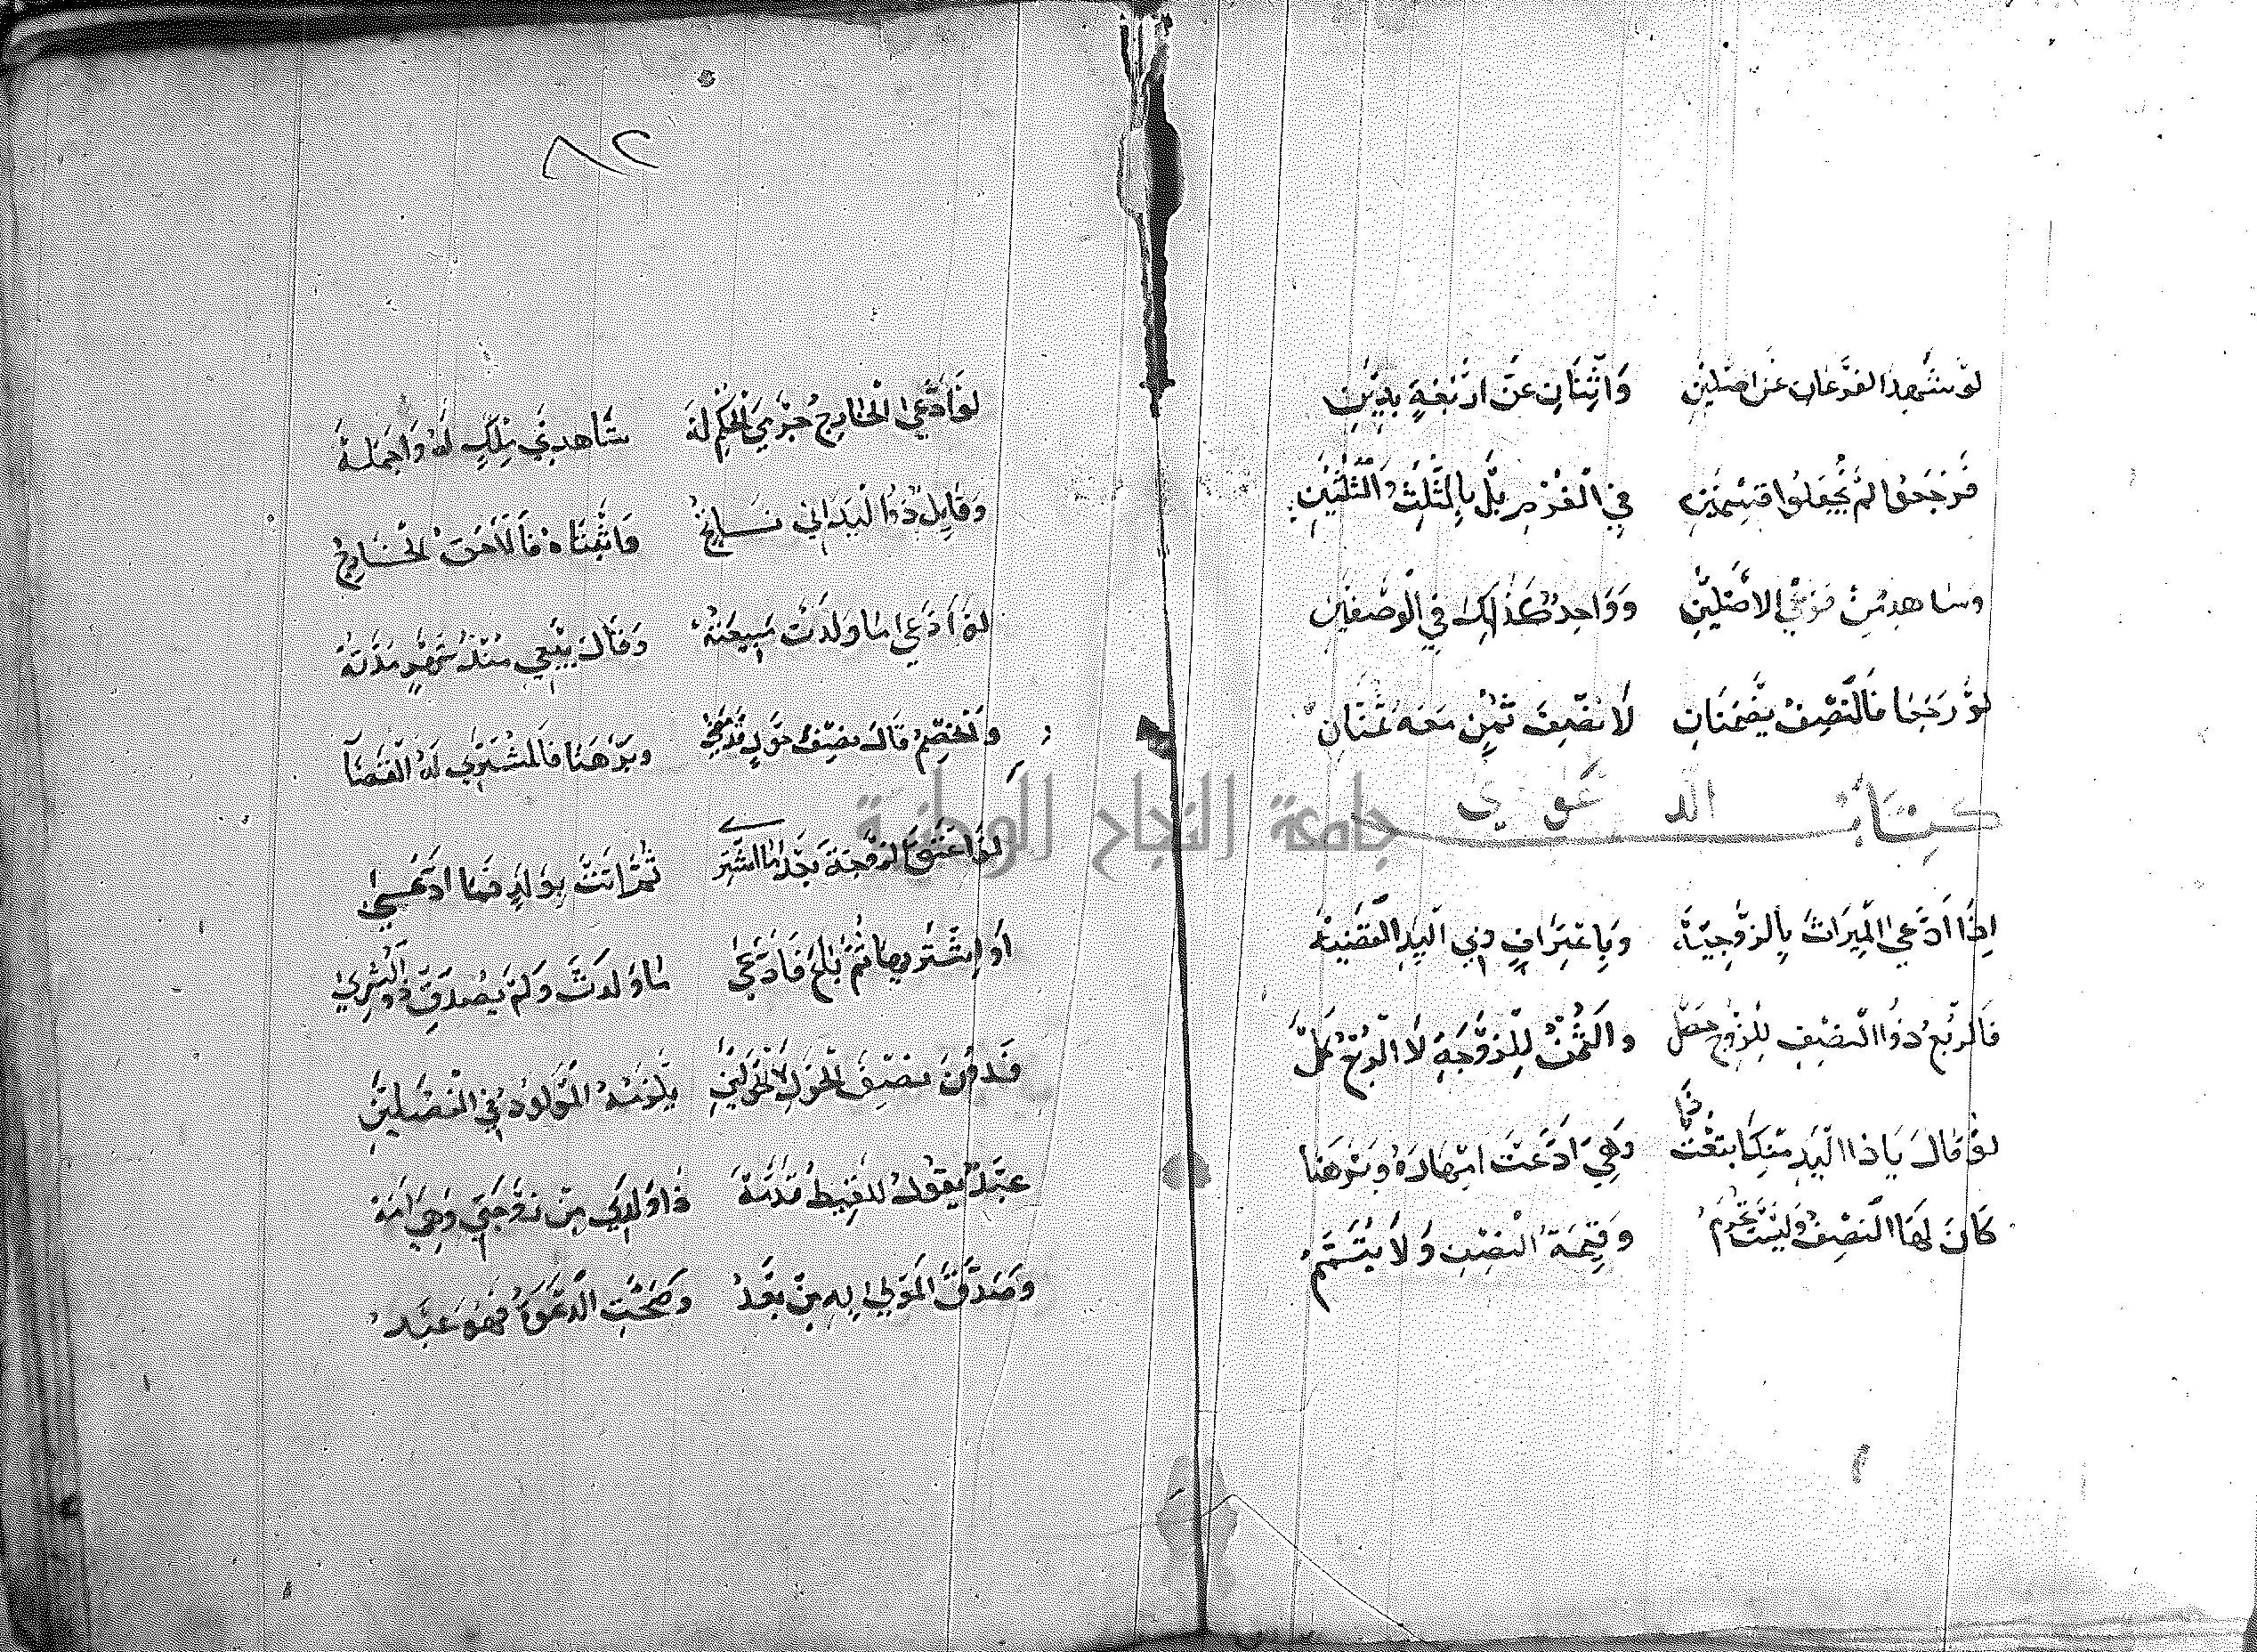 لَوْ شَهِدَ الفَرْعَانِ عَنْ اَصْلَيْنِ وَاثْنَانِ عَنْ اَرْبَعَةٍ بِدَيْنِ
فَرَجَعُوا لَمْ يُجْعَلُوا قِسْمَيْنِ فِي الْغُرْمِ بَلْ بِالثُّلْثِ وَالثُّلْثَيْنِ
وَشَاهِدَيْنِ فَرْعَيِ الاَصْلَيْنِ وَوَاحِدٌ كَذَلِكَ فِي الْوَصْفَيْنِ
لَوْ رَجَعَا فَالنِّصْفَ يَضْمَنَانِ لَا نِصْفَ ثُمْنٍ مَعَهُ ثُمْنَانِ
كِتَابُ الدعوي
اِذَا ادَّعَى الْمِيرَاثَ بِالزَّوْجِيَّةْ وَبِاعْتِرَافِ ذِي الْيَدِ الْقَضِيَّةْ
فَالرُّبْعُ ذُو النِّصْفِ لِلزَّوْجِ حَصَلْ وَالثُّمْنُ لِلزَّوْجَةِ لَا الرُّبْعُ كَمَلْ
لَوْ قَالَ يَا ذَا الْيَدِ مِنْكَ ابْتَعْتُ ذَا وَهِيَ ادَّعَتْ اِمْهَارَهُ وَبَرْهَنَا
كَانَ لَهَا النِّصْفُ وَلَيْسَتْ تُحْرَمُ وَقِيمَةُ النِّصْفِ وَلَا يُتَمَّمُ
٢٨
لَوِ ادَّعَى الْخَارِجُ جَرْيَ الْحُكْمِ لَهْ شَاهِدَيْ مِلْكٍ لَهُ وَاَجْمَلَهْ
وَقَابِلٌ ذُو الْيَدِ اَنِّي نَاسِجُ وَاثْبَتَاهُ فَالْاَحَقُّ الْخَارِجُ
لَوِ ادَّعَى مَا وَلَدَتْ مَبِيعَتُهْ وَقَالَ بَيْعِي مُنْذُ شَهْرٍ مُدَّتُهْ
وَالْخَصْمُ قَالَ نِصْفُ حَوْلٍ قَدْ مَضَى وَبَرْهَنَا فَالْمُشْتَرِي لَهُ الْقَضَا
لَوْ اَعْتَقَ الزَّوْجَةَ بَعْدَ مَا اشْتَرَى ثُمَّ اَتَتْ بِوَلَدٍ فَمَا ادَّعَى
اَوْ اِشْتَرَيهَا ثُمَّ بَاعَ فَادَّعَى مَا وَلَدَتْ وَلَمْ يُصَدِّقْ ذُو الشِّرَى
فَدُونَ نِصْفِ الْحَوْلِ لَا الْحَوْلَيْنِ يَلْزَمُهُ الْمَوْلُودُ فِي الْفَصْلَيْنِ
عَبْدٌ يَقُولُ لِلَقِيطٍ قَدَّمَهْ ذَا وَلَدِي مِنْ زَوْجَتِي وَهِيَ اَمَهْ
وَصَدَّقَ الْمَوْلَى بِهِ مِنْ بَعْدُ وَصَحَّتِ الدَّعْوَةُ فَهْوَ عَبْدُ
جامعة النجاح الوطنية